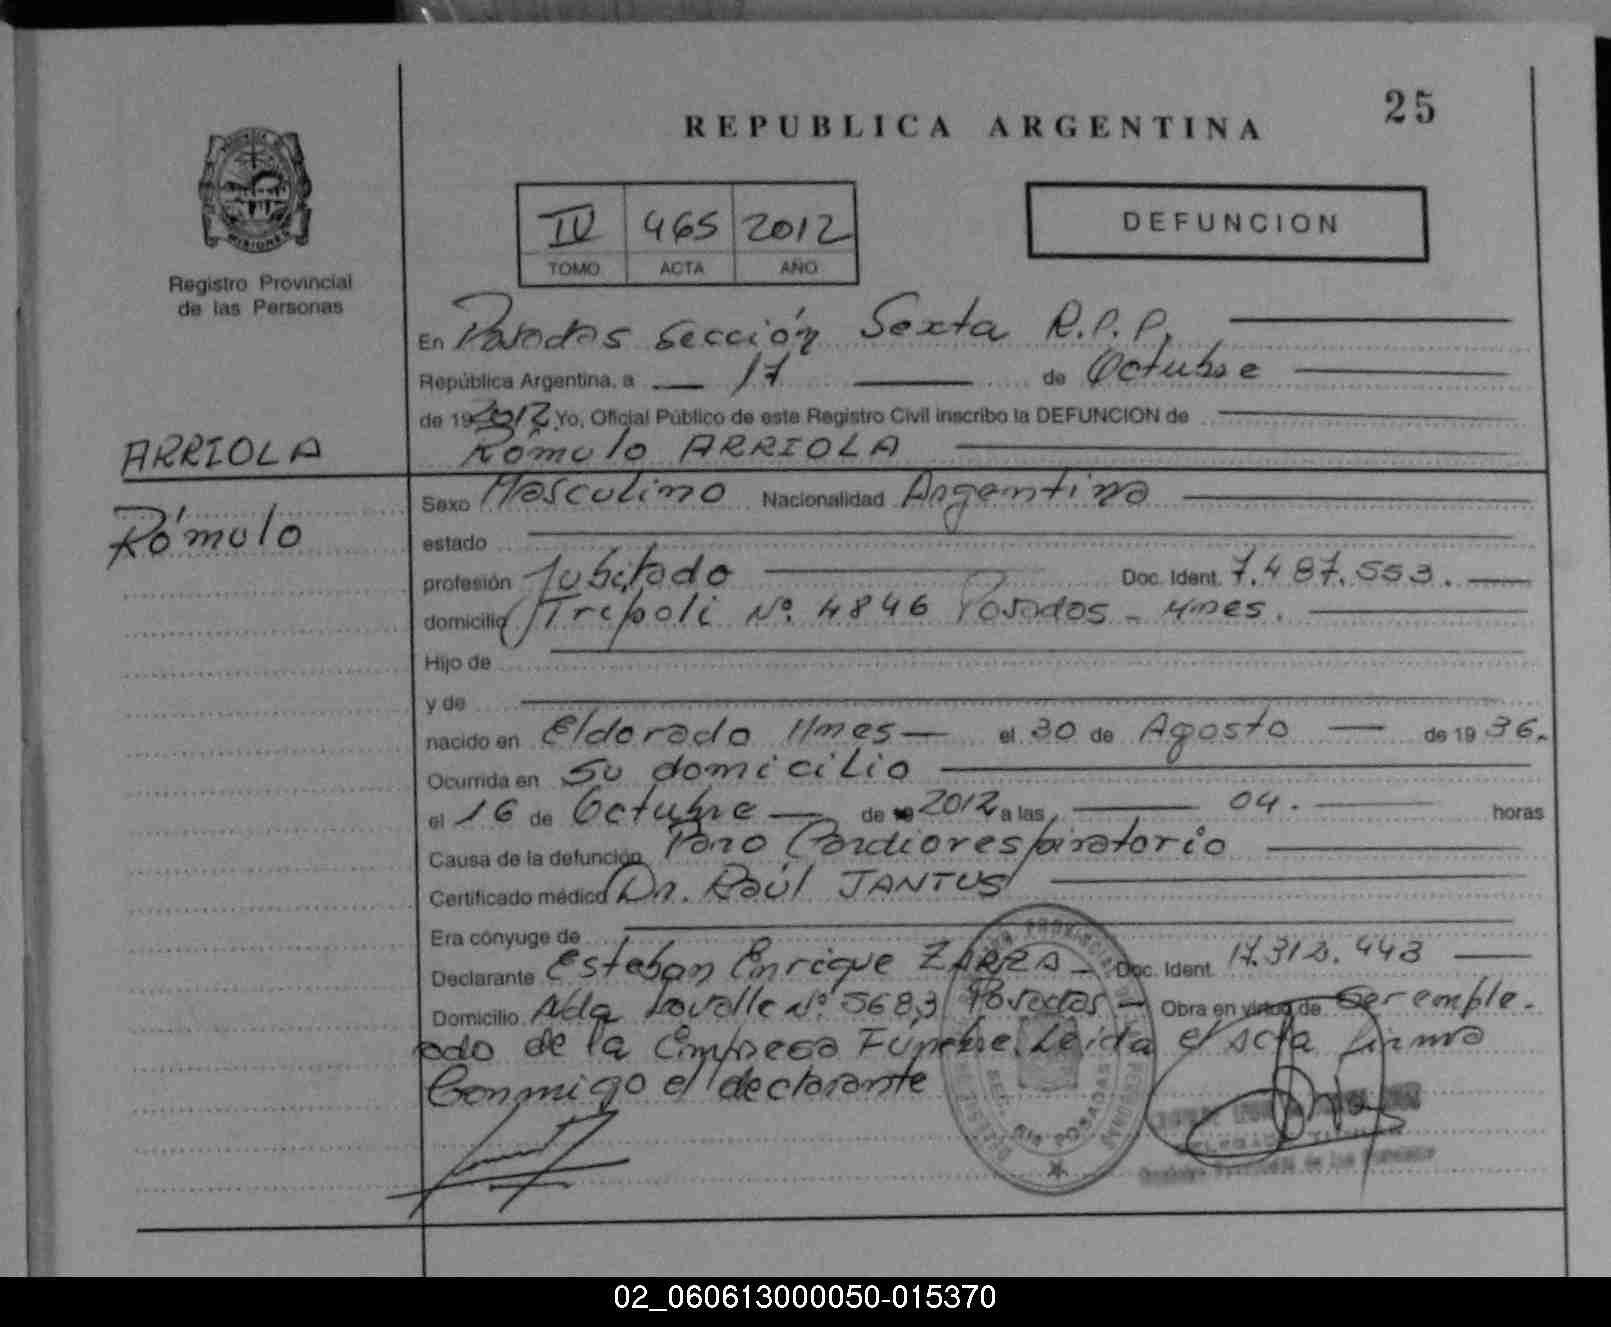 25
REPUBLICA ARGENTINA
MISIONES
Registro Provincial
de las Personas
IV 465 2012
TOMO ACTA AÑO
DEFUNCION
En Posadas Sección Sexta R.P.P.
República Argentina, a 17 de Octubre
de 19 2012 Yo, Oficial Público de este Registro Civil inscribo la DEFUNCION de
ARRIOLA
Rómulo ARRIOLA
Rómulo
Sexo Masculino Nacionalidad Argentina
estado
profesión Jubilado Doc. Ident. 7.487.553.
domicilio Tripoli Nº 4846 Posadas - Mnes.
Hijo de
y de
nacido en Eldorado Mnes - el 30 de Agosto de 19 36.
Ocurrida en Su domicilio
el 16 de Octubre de 2012 a las 04. horas
Causa de la defunción Paro Cardiorespiratorio
Certificado médico Dr. Raúl JANTUS
Era cónyuge de
Declarante Esteban Enrique Doc. Ident. 443
Domicilio Avda Lavalle Nº 5683 Posadas - Obra en virtud de Ser emple-
ado de la Empresa Fúnebre. Leida el acta firma
Conmigo el declarante
POSADAS
02_060613000050-015370